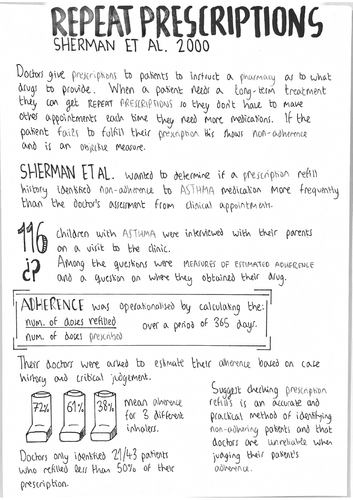 REPEAT PRESCRIPTIONS
SHERMAN ET AL. 2000
Doctors give prescriptions to patients to instruct a pharmacy as to what
drugs to provide. When a patient needs a long-term treatment
they can get REPEAT PRESCRIPTIONS so they don't have to make
other appointments each time they need more medications. If the
patient fails to fulfill their prescription this shows non-adherence
and is an objective measure.
SHERMAN ET AL. wanted to determine if a prescription refill
history identified non-adherence to ASTHMA medication more frequently
than the doctor's assessment from clinical appointments.
116 children with ASTHMA were interviewed with their parents
on a visit to the clinic.
¿? Among the questions were MEASURES OF ESTIMATED ADHERENCE
and a question on where they obtained their drug.
ADHERENCE was operationalised by calculating the:
num. of doses refilled
num. of doses prescribed
over a period of 365 days.
Their doctors were asked to estimate their adherence based on case
history and critical judgement.
72% 61% 38%
mean adherence
for 3 different
inhalers.
Doctors only identified 21/43 patients
who refilled less than 50% of their
prescription.
Suggest checking prescription
refills is an accurate and
practical method of identifying
non-adhering patients and that
doctors are unreliable when
judging their patient's
adherence.